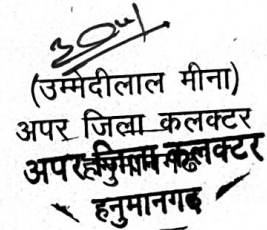 (उम्मेदीलाल मीना)
अपर जिला कलक्टर
अपर जिला कलक्टर
हनुमानगढ़